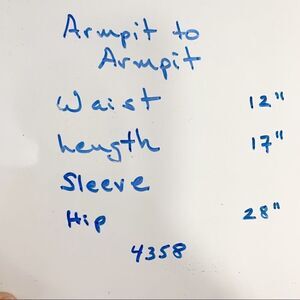 Armpit to
Armpit
Waist 12"
Length 17"
Sleeve
Hip 28"
4358